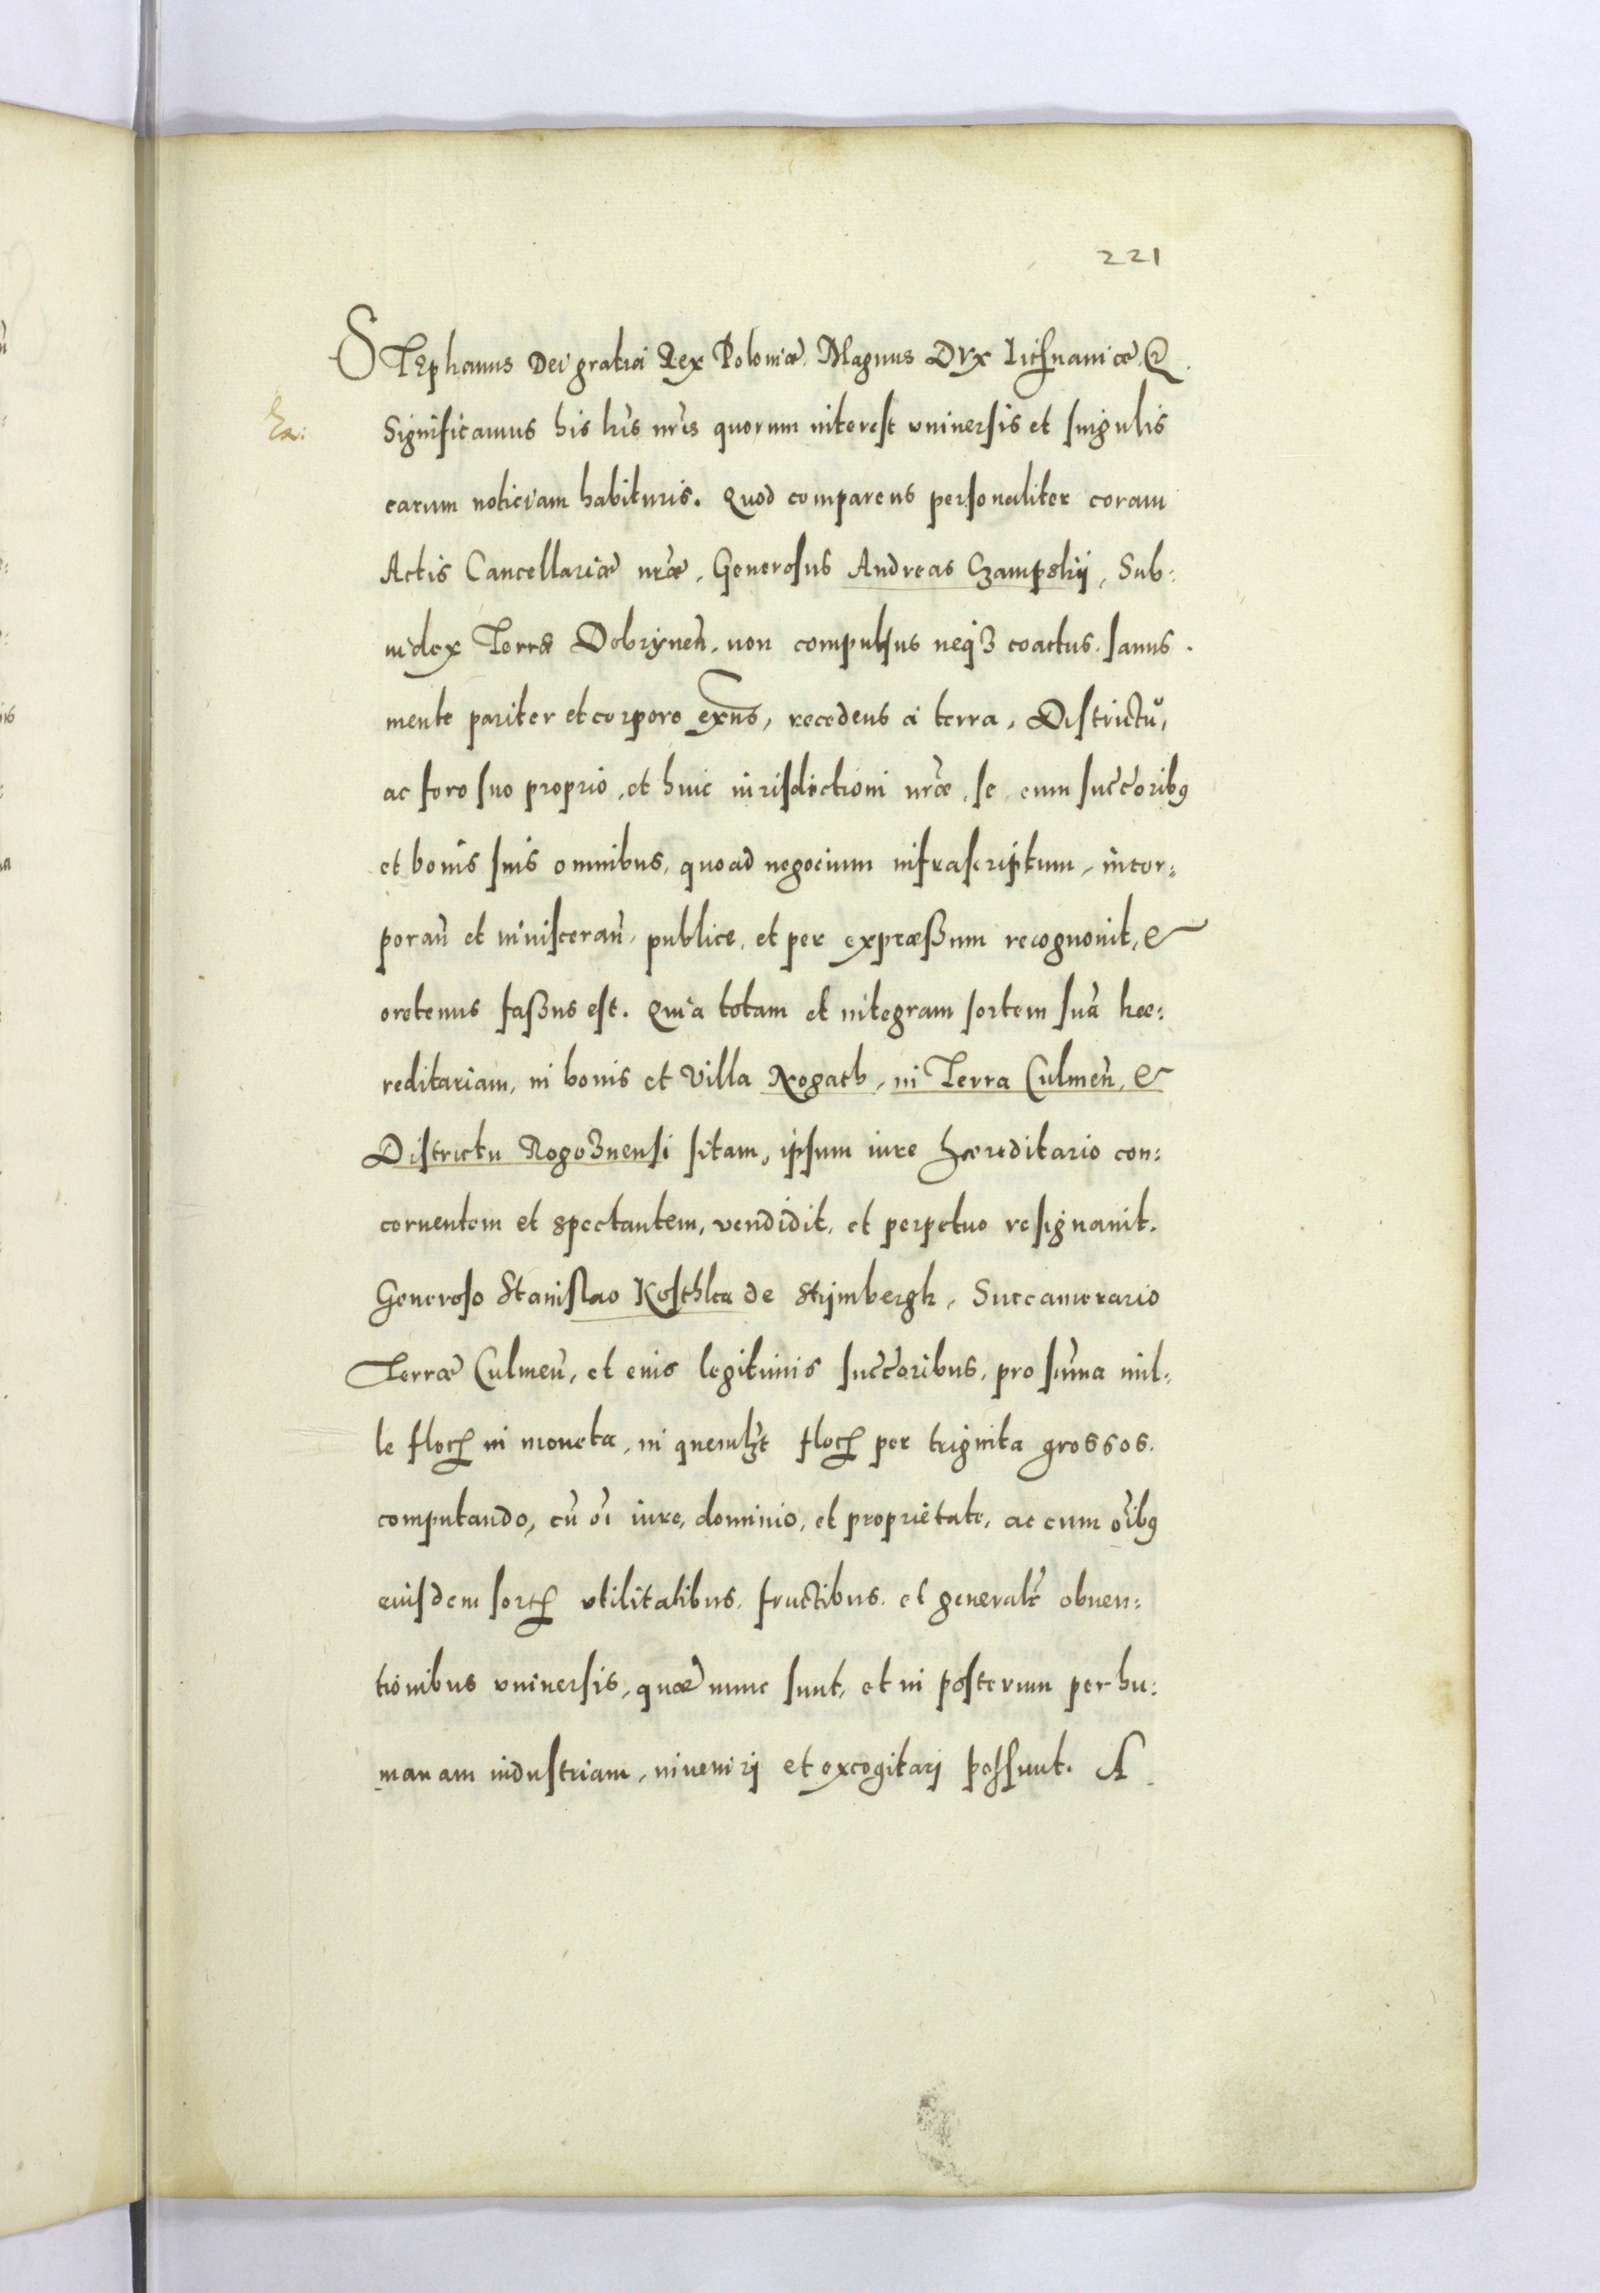 221
STEphanus Dei gratia Rex Poloniæ. Magnus DVx Lithuaniæ &.
Significamus his lr̃is nr̃is quorum interest vniuersis et singulis
earum noticiam habituris. Quod comparens personaliter coram
Actis Cancellariæ nr̃æ, Generosus Andreas Czampskij, Sub:
iudex Terræ Dobrÿneñ. non compulsus neqꝫ coactus. sanus
mente pariter et corpore ex̃ns, recedens a terra, Districtu,
ac foro suo proprio, et huic iurisdictioni nr̃æ, se, cum succ̃oribꝰ
et bonis suis omnibus, quoad negocium infrascriptum, incor:
porañ et inuisceraũ, publice, et per expræßum recognouit, &
oretenus faßus est. Quia totam et integram sortem suã hæ:
reditariam, in bonis et villa Nogath, in Terra Culmeñ, &
Districtu Rogoznensi sitam, ipsum iure hæreditario con:
cernentem et spectantem, vendidit, et perpetuo resignauit.
Generoso Stanislao Kosthka de Stÿmbergk, Succamerario
Terræ Culmeñ, et eius legitimis succ̃oribus, pro sum̃a mil:
le floꝝ in moneta, in quemlꝫt floꝝ per triginta grossos.
computando, cũ oĩ iure, dominio, et proprietate, ac cum oĩbꝰ
eiusdem sorꝭ vtilitatibus, fructibus, et generalr̃ obuen:
tionibus vniuersis, quæ nunc sunt, et in posterum per hu:
manam industriam, inueniri et excogitari possunt. A